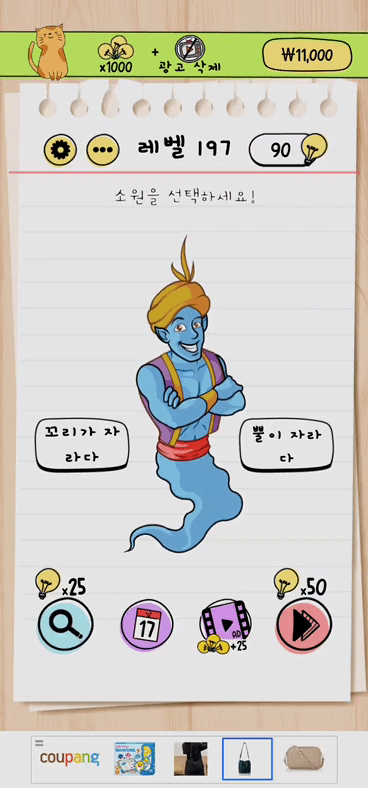 x1000
+
광고 삭제
₩11,000
레벨 197
90
소원을 선택하세요!
꼬리가 자
라다
뿔이 자라
다
x25
x50
17
AD
+25
coupang